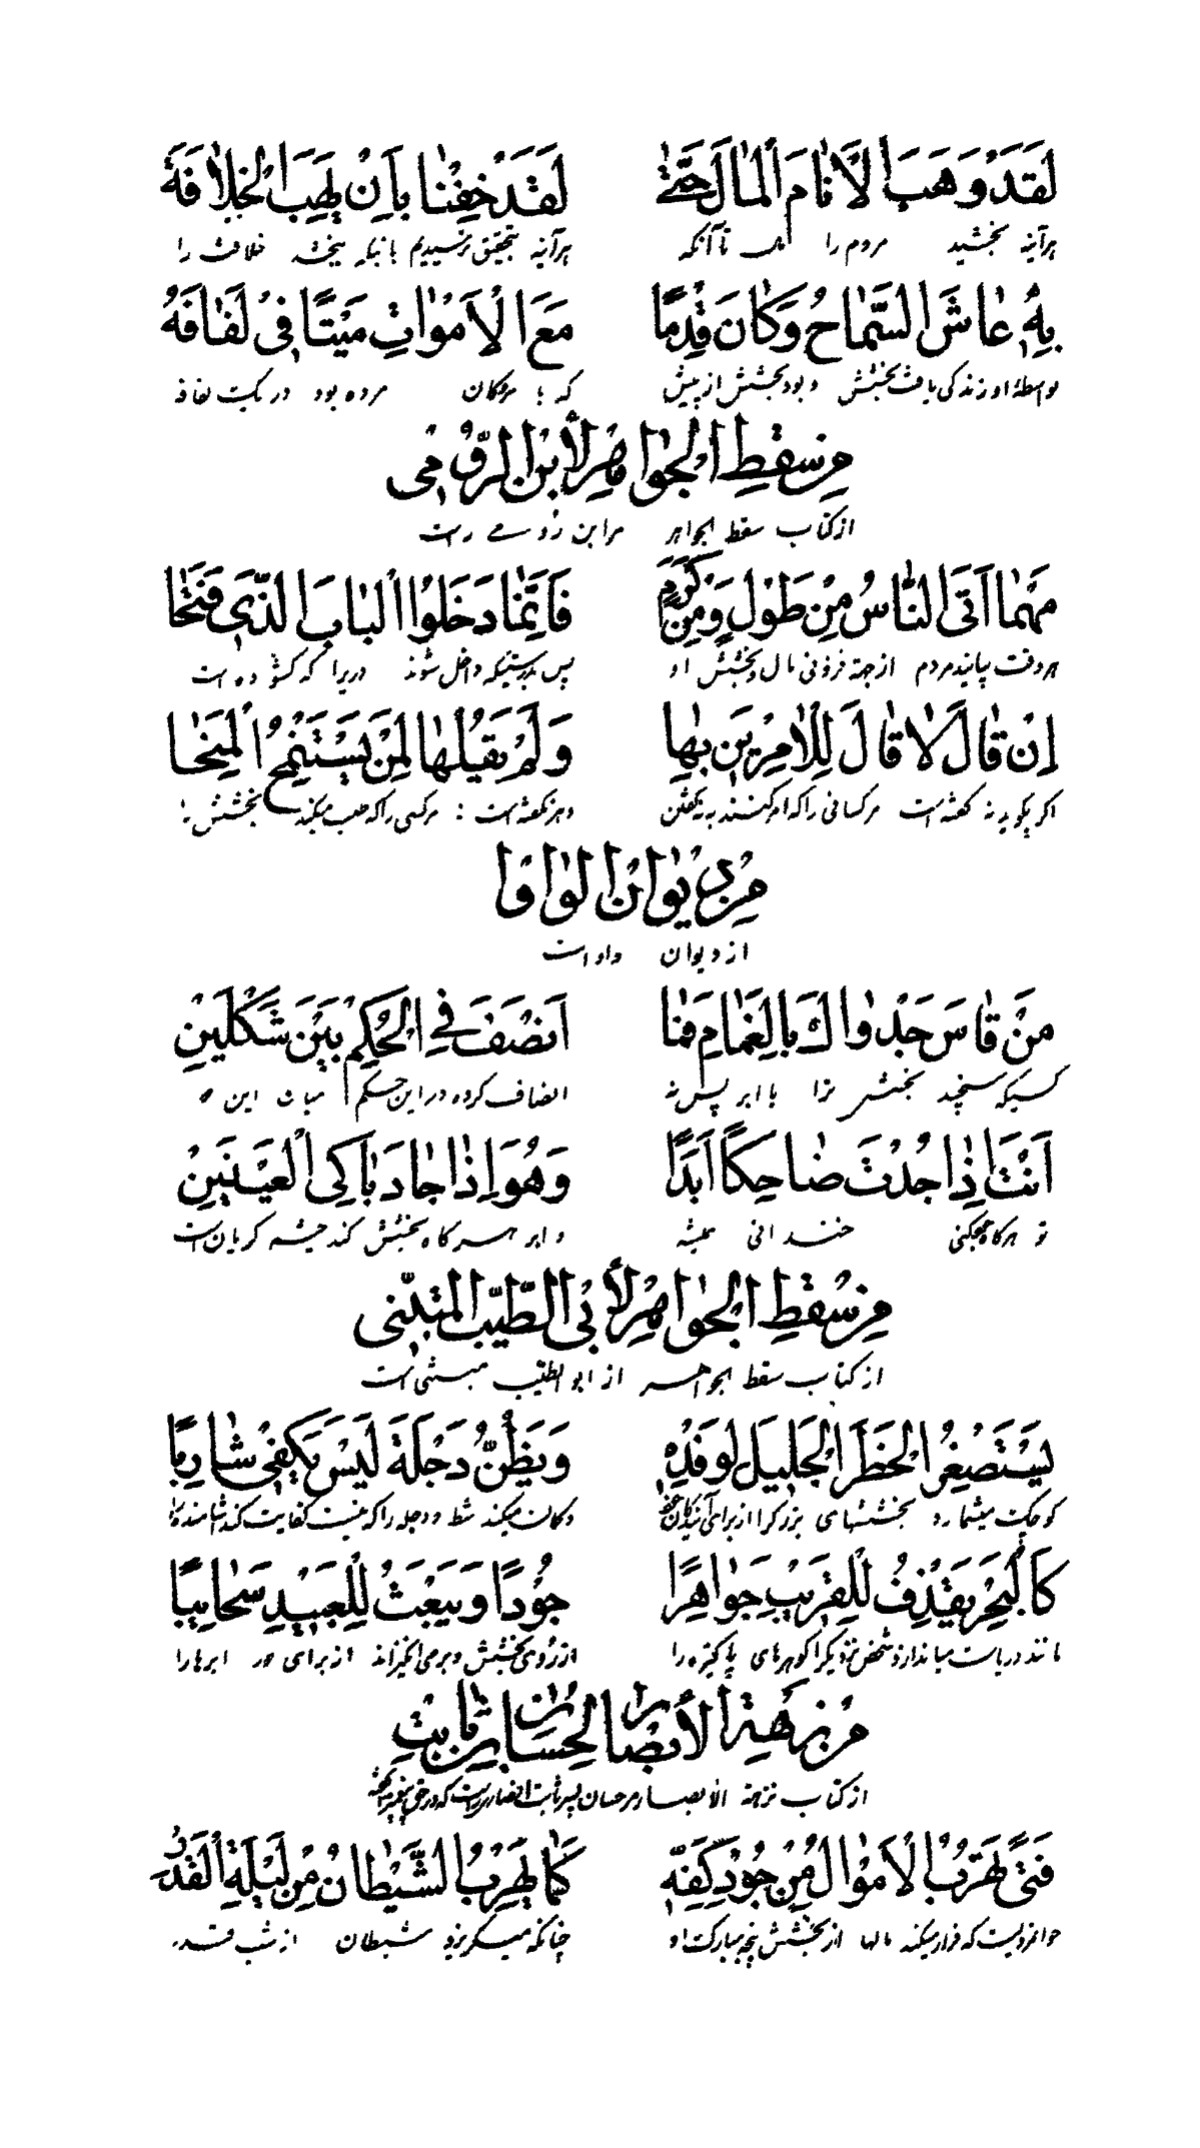 لَقَدْ وَهَبَ الْأَنَامَ الْمَالَ حَتّٰى لَقَدْ خِفْنَا بِاَنْ يَهِبَ الْخِلَافَةَ
هرآینه بخشید مردم را مال تا آنکه هرآینه بتحقیق ترسیدیم بانیکه ببخشد خلافت را
بِهِ عَاشَ السَّمَاحُ وَكَانَ قِدْمًا مَعَ الْاَمْوَاتِ مَيْتًا فِي لَفَافَةٍ
بواسطهٔ او زندگی یافت بخشش و بود بخشش از پیش که با مردگان مرده بود در یکت لفافه
مِنْ سِقْطِ الْجَوَاهِرِ لِأَبْنِ الرُّوْمِي
از کتاب سقط الجواهر مر ابن رومی راست
مَهْمَا اَتَى النَّاسُ مِنْ طَوْلٍ وَمِنْ كَرَمٍ فَاِنَّمَا دَخَلُوا الْبَابَ الَّذِي فَتَحَا
هر وقت بیایند مردم از جهة فزونی مال و بخشش او پس بدرستیکه داخل شوند دریرا که کشوده است
اِنْ قَالَ لَا قَالَ لِلْاٰمِرِينَ بِهَا وَلَمْ يَقُلْهَا لِمَنْ يَسْتَمْنِحُ الْمِنَحَا
اکر بکوید نه کفته است مر کسانی را که امر کنند به نکفتن و هرکز نکفته است مر کسی را که طلب میکند بخشش
مِنْ دِيْوَانِ الْوَاوَا
از دیوان واواست
مَنْ قَاسَ جَدْوَاكَ بِالْغَمَامِ فَمَا اَنْصَفَ فِي الْحُكْمِ بَيْنَ شَكْلَيْنِ
کسیکه سنجد بخشش ترا با ابر پس نه انصاف کرده در این حکم میان این
اَنْتَ اِذَا جُدْتَ ضَاحِكًا اَبَدًا وَهُوَ اِذَا جَادَ بَاكِي الْعَيْنَيْنِ
تو هرکاه خندانی همیشه و ابر هر گاه بخشش کند همیشه کریان است
مِنْ سِقْطِ الْجَوَاهِرِ لِأَبِي الطَّيِّبِ الْمُتَنَبِّي
از کتاب سقط الجواهر از ابو الطیب متنبی است
يَسْتَصْغِرُ الْخَطَرَ الْجَلِيلَ لِوَفْدِهِ وَيَظُنُّ دَجْلَةَ لَيْسَ يَكْفِي شَارِبًا
کوچک میشمارد بخششهای بزرکرا از برای و کمان میکند شط دجله را که نیست کفایت کند
كَالْبَحْرِ يَقْذِفُ لِلْقَرِيبِ جَوَاهِرًا جُوْدًا وَيَبْعَثُ لِلْبَعِيدِ سَحَائِبًا
مانند دریاست میاندازد شخص نزدیکرا کوهرهای پاکیزه را از روی بخشش و برمی انکیزاند از برای دور ابرها را
مِنْ نُزْهَةِ الْأَبْصَارِ لِحَسَّانِ بْنِ ثَابِتٍ
از کتاب نزهة الابصار مر حسان پسر ثابت انصاری راست که در حق پیغمبر
فَتًى تَهْرُبُ الْاَمْوَالُ مِنْ جُوْدِ كَفِّهِ كَمَا يَهْرُبُ الشَّيْطَانُ مِنْ لَيْلَةِ الْقَدْرِ
جوانمردیست که فرار میکند مالها از بخشش پنجهٔ مبارکت او چنانکه میکریزد شیطان از شب قدر